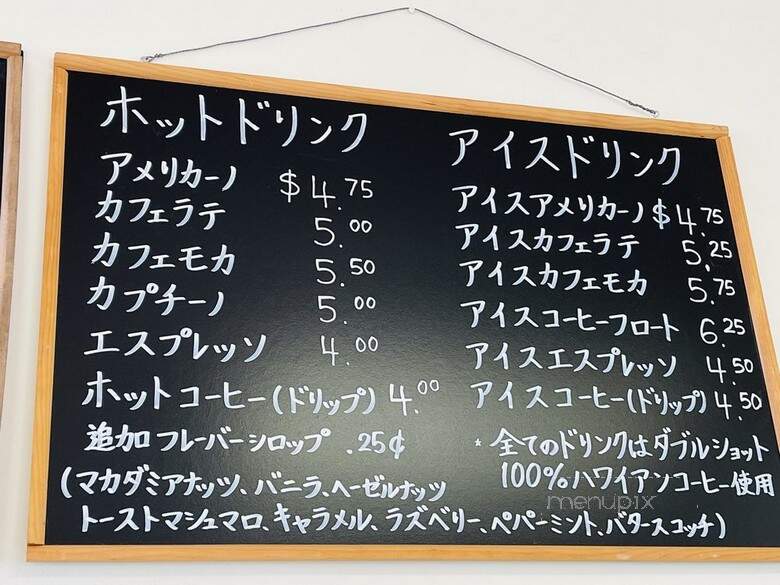 ホットドリンク
アメリカーノ $4.75
カフェラテ 5.00
カフェモカ 5.50
カプチーノ 5.00
エスプレッソ 4.00
ホットコーヒー(ドリップ) 4.00
追加フレーバーシロップ .25¢
(マカダミアナッツ、バニラ、ヘーゼルナッツ
トーストマシュマロ、キャラメル、ラズベリー、ペパーミント、バタースコッチ)
アイスドリンク
アイスアメリカーノ $4.75
アイスカフェラテ 5.25
アイスカフェモカ 5.75
アイスコーヒーフロート 6.25
アイスエスプレッソ 4.50
アイスコーヒー(ドリップ) 4.50
* 全てのドリンクはダブルショット
100%ハワイアンコーヒー使用
menupix